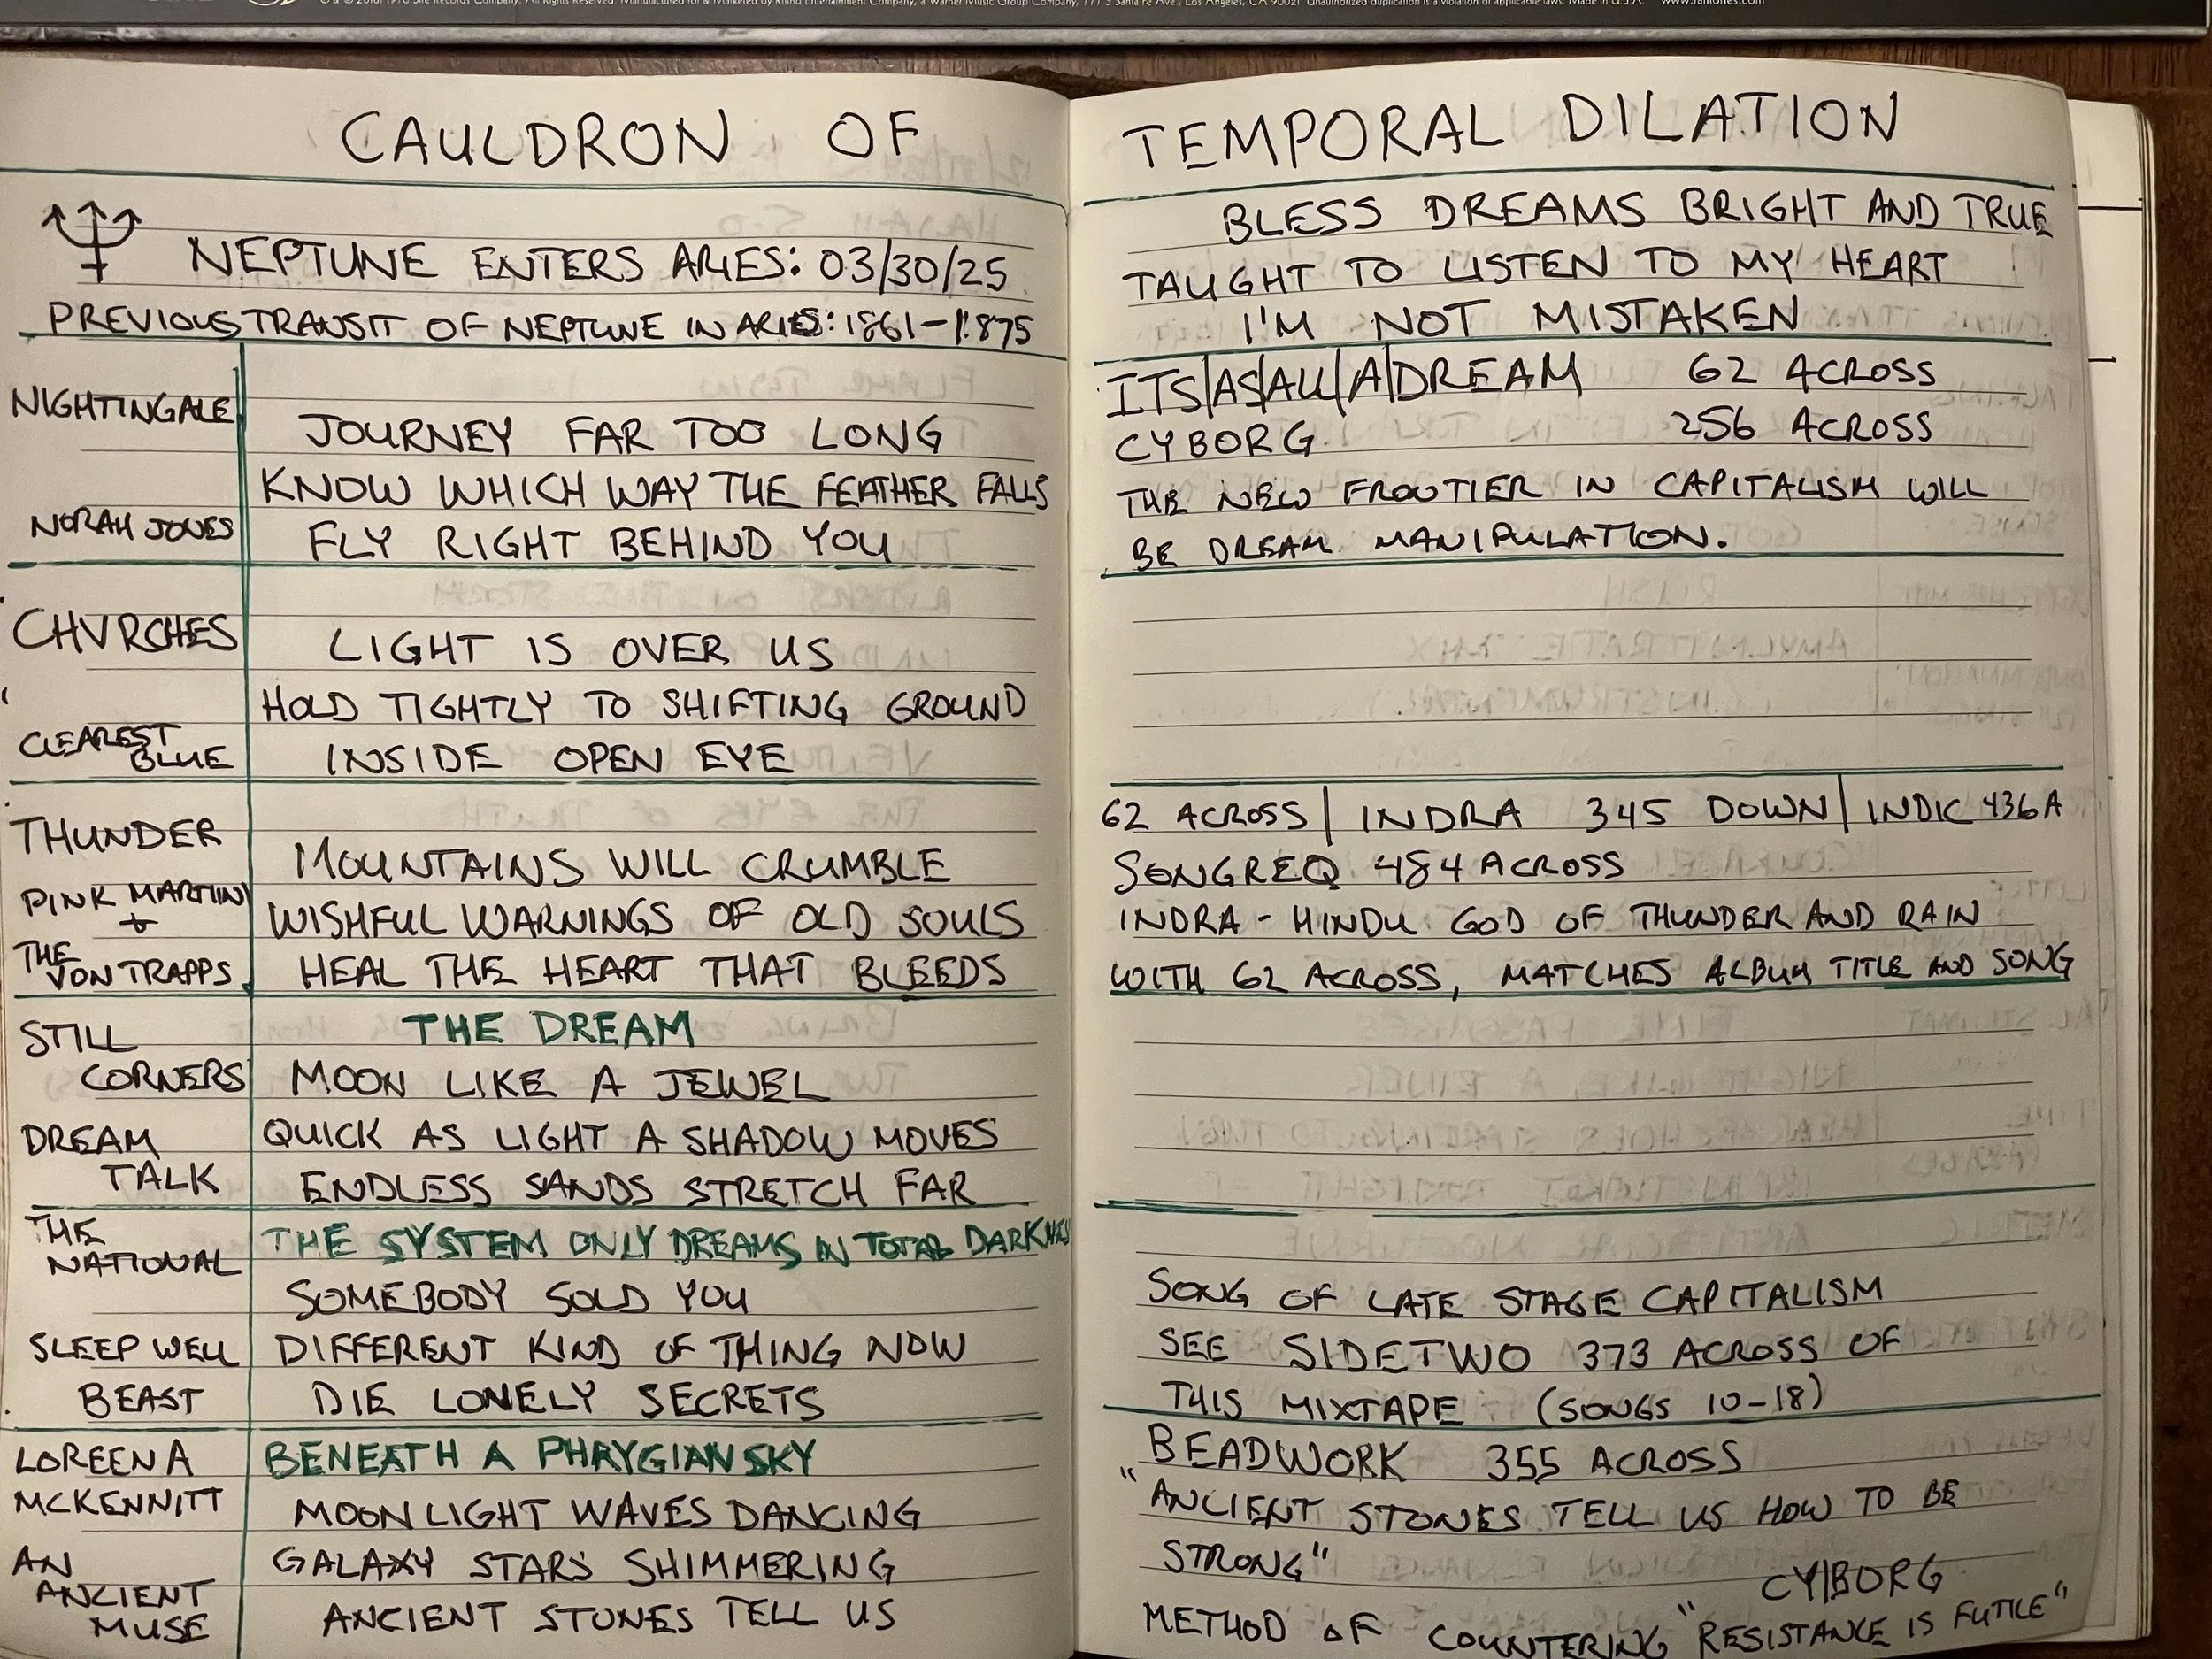 © & ℗ 2018, 1978 Sire Records Company. All Rights Reserved. Manufactured for & Marketed by Rhino Entertainment Company, a Warner Music Group Company, 777 S Santa Fe Ave., Los Angeles, CA 90021. Unauthorized duplication is a violation of applicable laws. Made in U.S.A. www.ramones.com
CAULDRON OF
NEPTUNE ENTERS ARIES: 03/30/25
PREVIOUS TRANSIT OF NEPTUNE IN ARIES: 1861-1875
NIGHTINGALE
JOURNEY FAR TOO LONG
KNOW WHICH WAY THE FEATHER FALLS
NORAH JONES
FLY RIGHT BEHIND YOU
CHVRCHES
LIGHT IS OVER US
HOLD TIGHTLY TO SHIFTING GROUND
CLEAREST
BLUE
INSIDE OPEN EYE
THUNDER
MOUNTAINS WILL CRUMBLE
PINK MARTINI
+
WISHFUL WARNINGS OF OLD SOULS
THE
VON TRAPPS
HEAL THE HEART THAT BLEEDS
STILL
CORNERS
THE DREAM
MOON LIKE A JEWEL
DREAM
TALK
QUICK AS LIGHT A SHADOW MOVES
ENDLESS SANDS STRETCH FAR
THE
NATIONAL
THE SYSTEM ONLY DREAMS IN TOTAL DARKNESS
SOMEBODY SOLD YOU
SLEEP WELL
BEAST
DIFFERENT KIND OF THING NOW
DIE LONELY SECRETS
LOREENA
MCKENNITT
BENEATH A PHRYGIAN SKY
MOONLIGHT WAVES DANCING
AN
ANCIENT
MUSE
GALAXY STARS SHIMMERING
ANCIENT STONES TELL US
TEMPORAL DILATION
BLESS DREAMS BRIGHT AND TRUE
TAUGHT TO LISTEN TO MY HEART
I'M NOT MISTAKEN
ITS|AS|ALL|A|DREAM 62 ACROSS
CYBORG 256 ACROSS
THE NEW FRONTIER IN CAPITALISM WILL
BE DREAM MANIPULATION.
62 ACROSS | INDRA 345 DOWN | INDIC 436A
SONGREQ 484 ACROSS
INDRA - HINDU GOD OF THUNDER AND RAIN
WITH 62 ACROSS, MATCHES ALBUM TITLE AND SONG
SONG OF LATE STAGE CAPITALISM
SEE SIDETWO 373 ACROSS OF
THIS MIXTAPE (SONGS 10-18)
BEADWORK 355 ACROSS
"ANCIENT STONES TELL US HOW TO BE
STRONG"
CY|BORG
METHOD OF COUNTERING "RESISTANCE IS FUTILE"